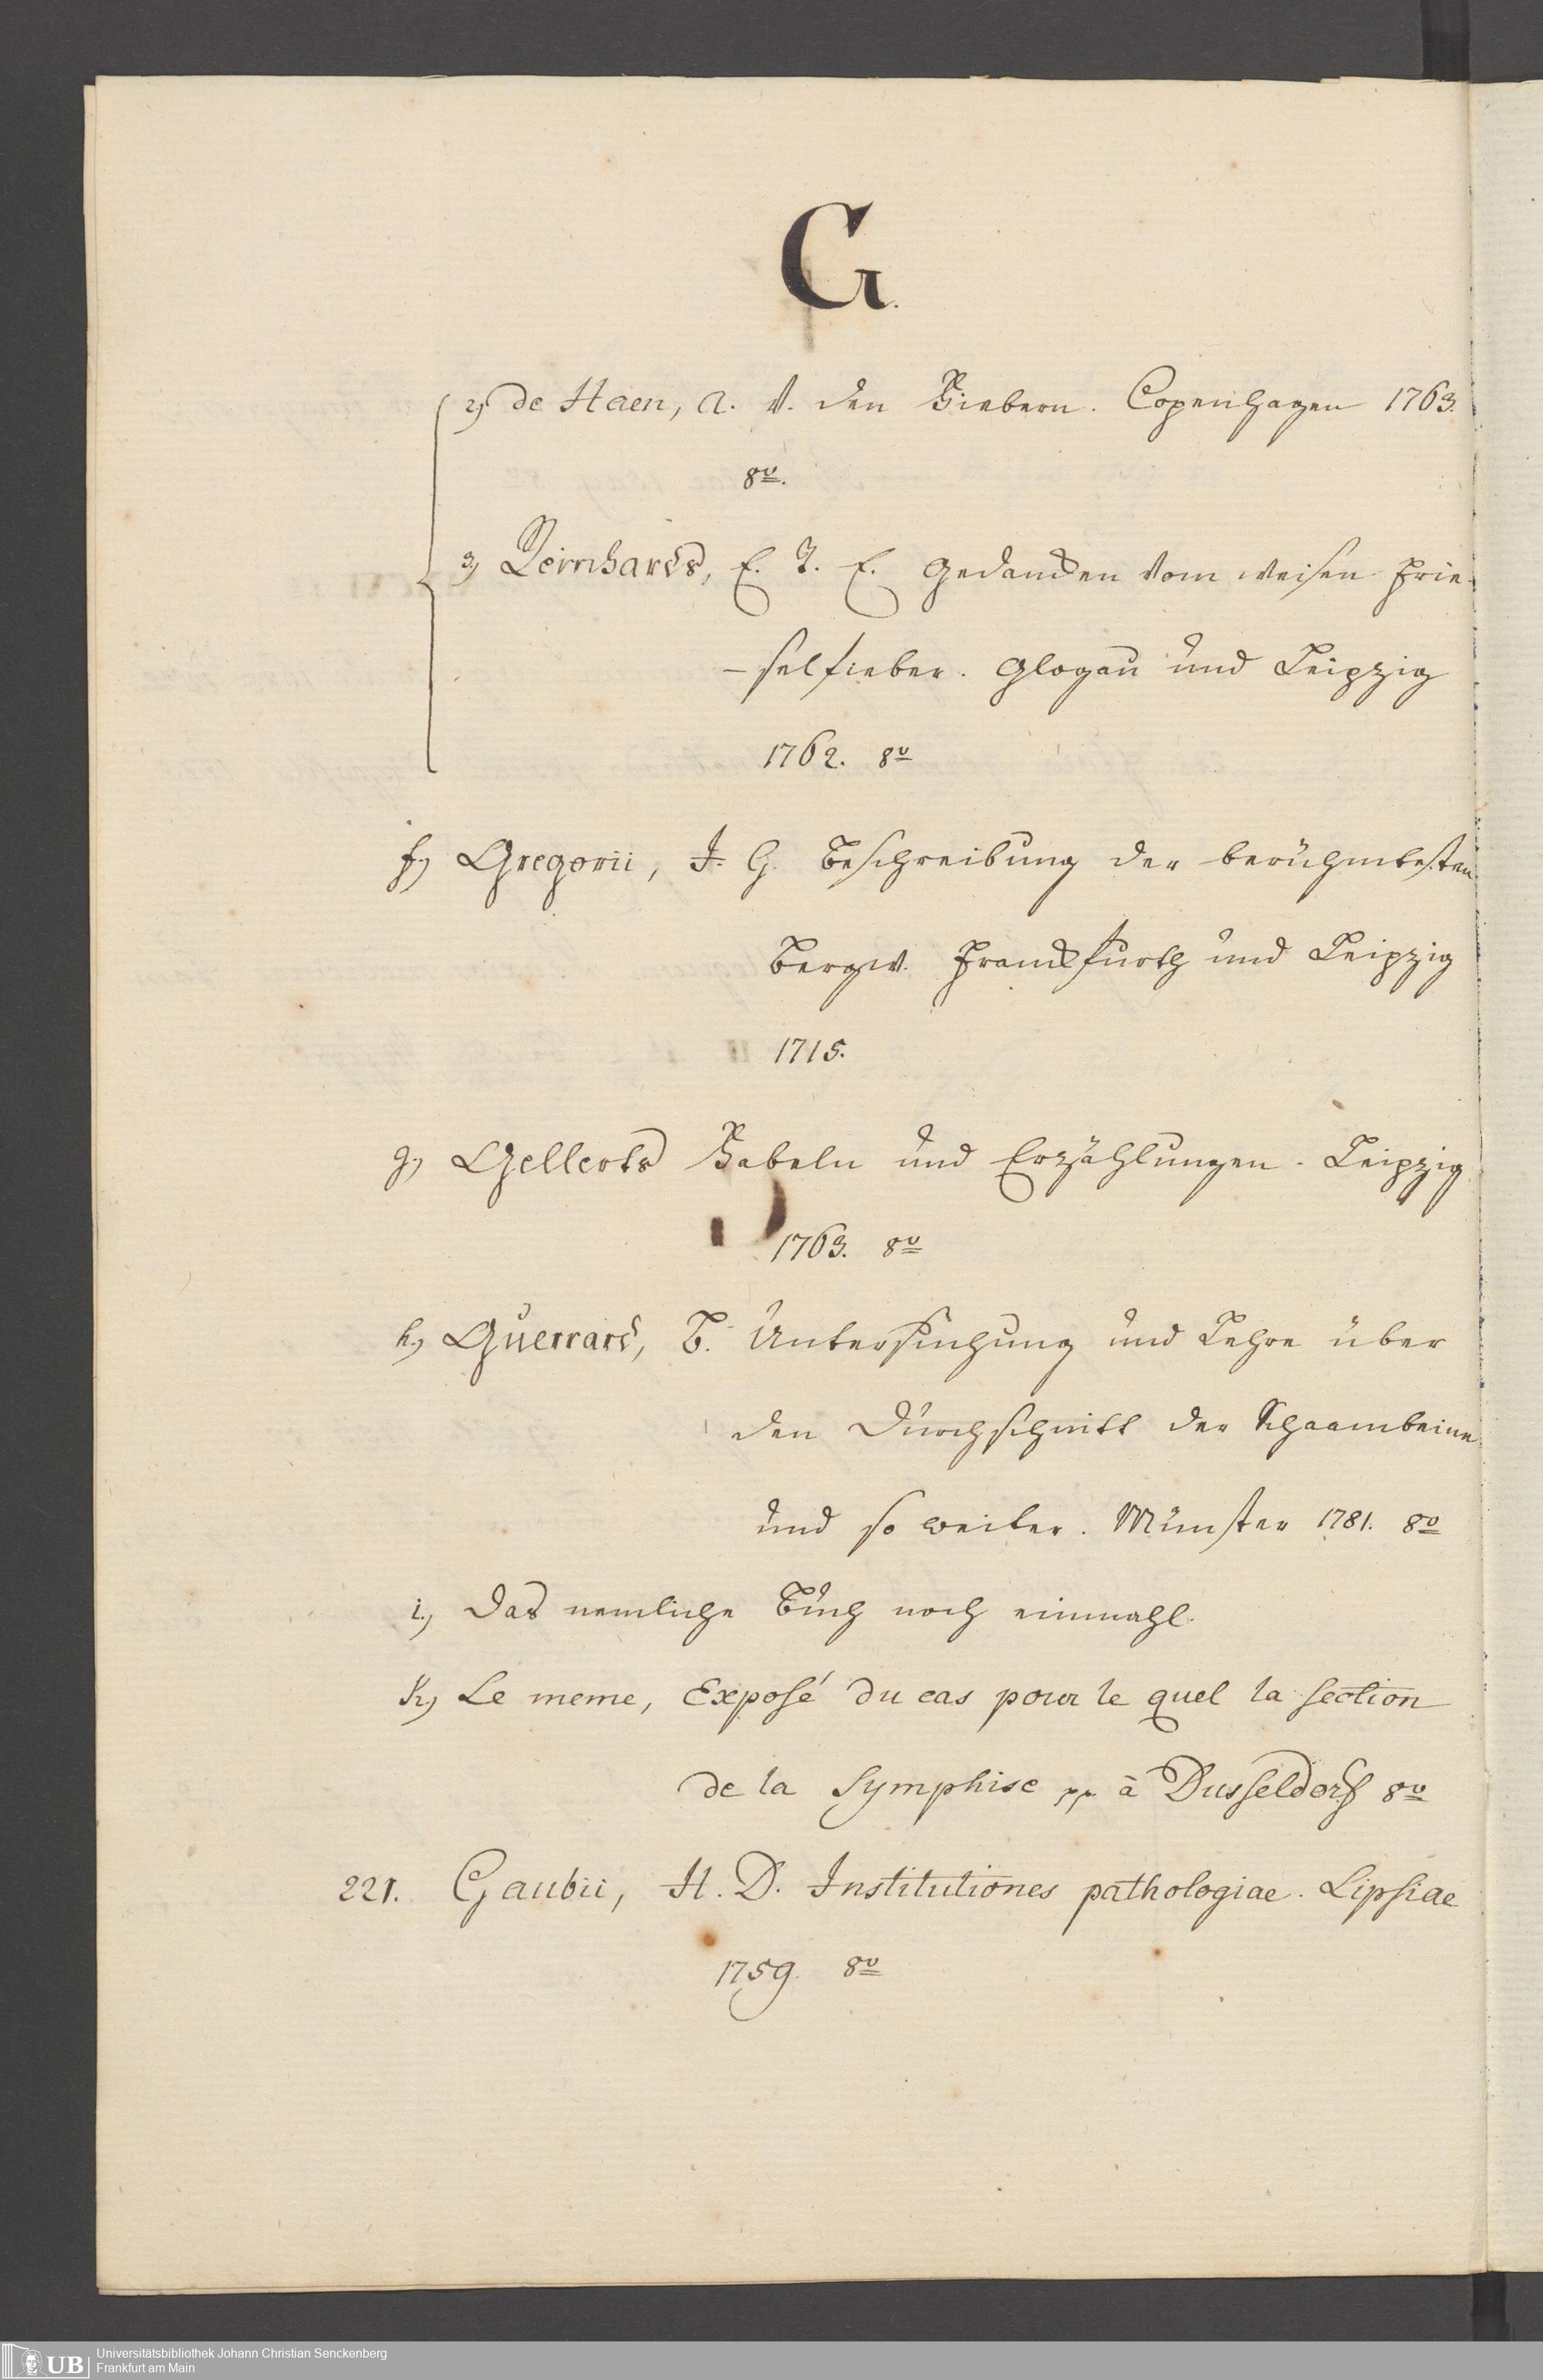 G.
2) de Haen, A. V. den Fiebern. Copenhagen 1763.
8v.
3) Reinhards, C. T. E. Gedancken vom weisen Frie-
-selfieber. Glogau und Leipzig
1762. 8v
f) Gregorii, J. G. Beschreibung der berühmtesten
Bergw. Franckfurth und Leipzig
1715.
g) Gellerts Fabeln und Erzählungen. Leipzig
1763. 8v
h) Guerrard, B. Untersuchung und Lehre über
den Durchschnitt der Schaambeine
und so weiter. Münster 1781. 8v
i.) Das nemliche Buch noch einmahl.
k) Le meme, Exposé du cas pour le quel la section
de la Symphise pp. à Dusseldorf 8v
221. Gaubii, H. D. Institutiones pathologiae. Lipsiae
1759. 8v
UB
Universitätsbibliothek Johann Christian Senckenberg
Frankfurt am Main